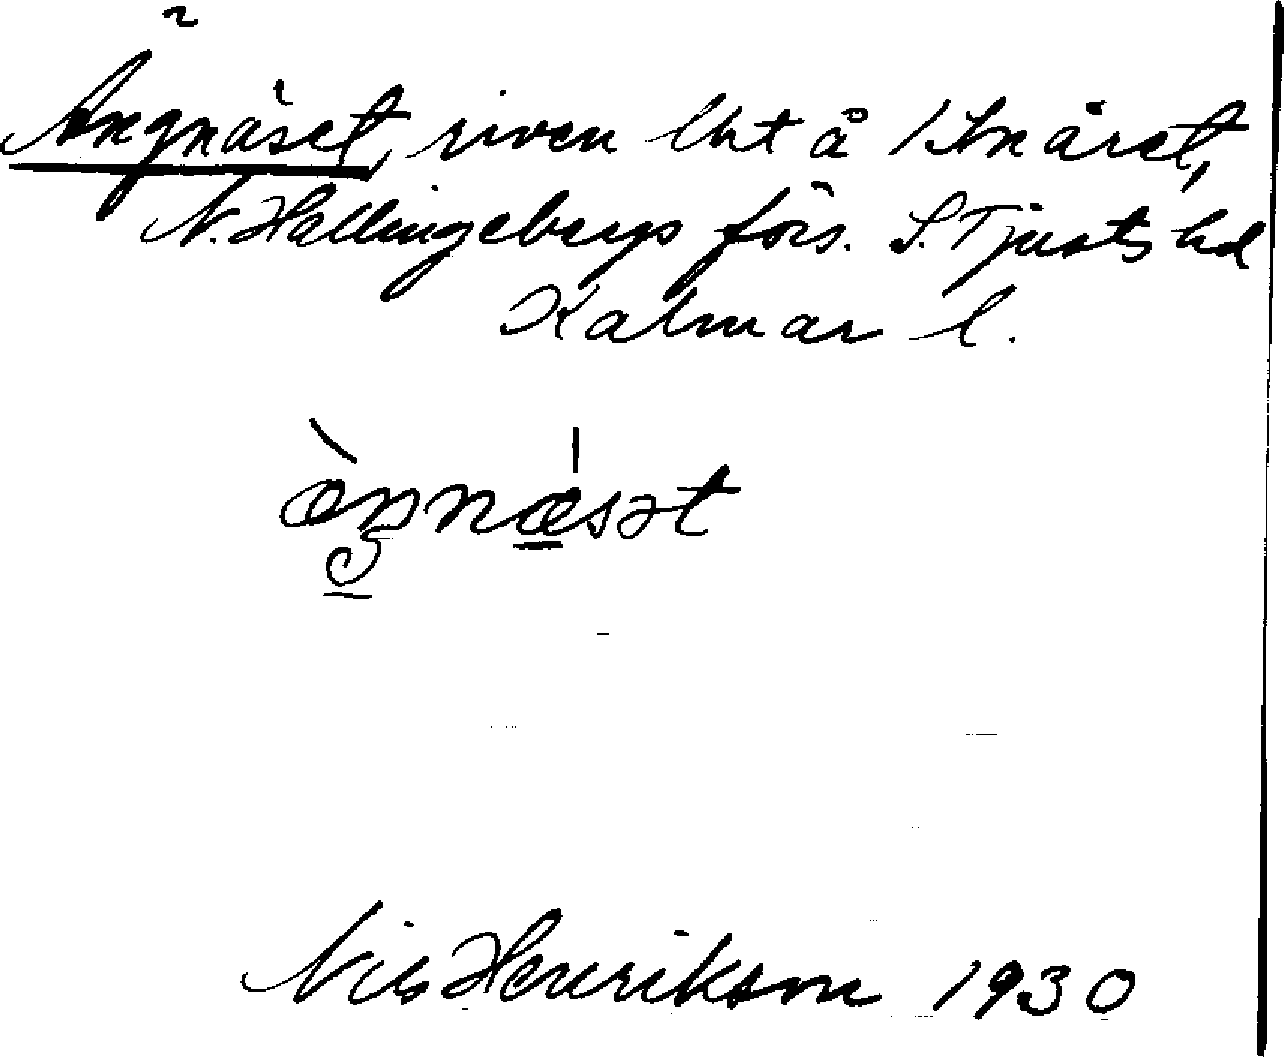 Ängnäset, riven lht å
N. Hallingebergs förs. S. Tjusts hd
Kalmar l.
æŋnæsət
Nils Henrikson 1930